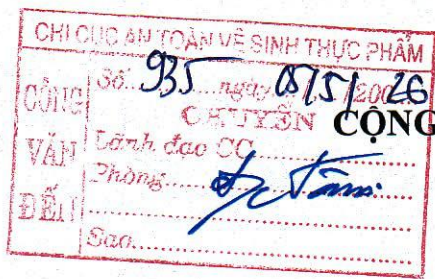 CHI CỤC AN TOÀN VỆ SINH THỰC PHẨM
CÔNG VĂN ĐẾN
Số 935 ngày 05/5/200 26
CHUYỂN
Lãnh đạo CC
Phòng
Sao
CỘNG